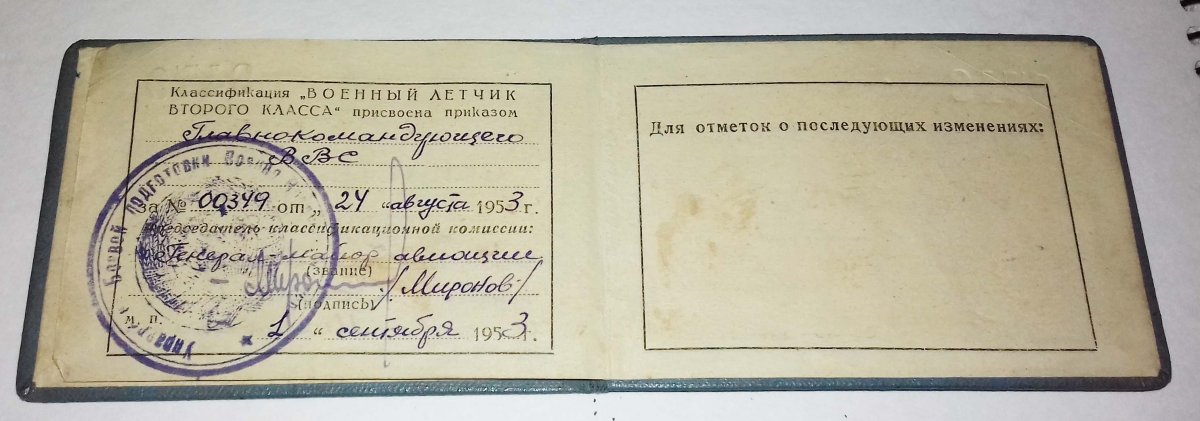 Классификация „ВОЕННЫЙ ЛЕТЧИК
ВТОРОГО КЛАССА“ присвоена приказом
Главнокомандующего
ВВС
за № 00349 от „ 24 “ августа 1953 г.
Председатель классификационной комиссии:
Генерал-майор авиации
(звание)
/Миронов/
(подпись)
М. П.
1 “ сентября 1953 г.
Боевой подготовки Военно
Для отметок о последующих изменениях: